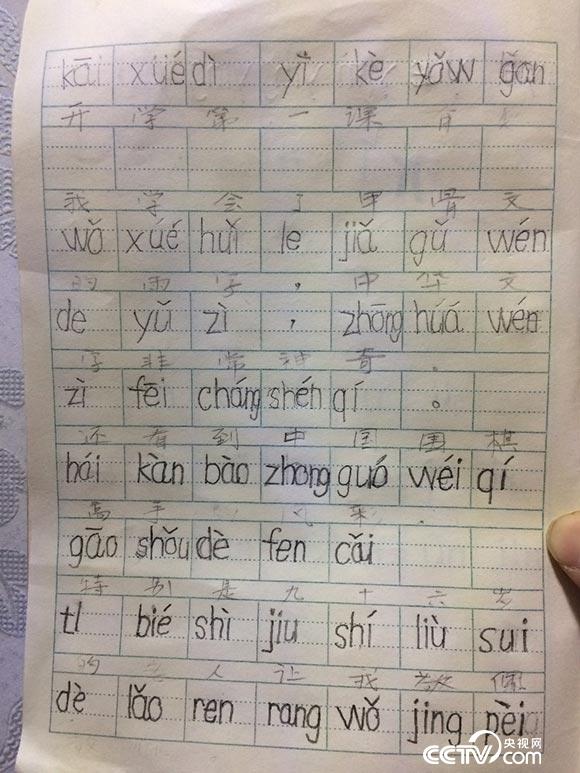 kāi xué dì yī kè yǎw gǎn
开 学 第 一 课
我 学 会 了 甲 骨 文
wǒ xúé huǐ le jiǎ gǔ wén
的 雨 字 , 中 华 文
de yǔ zì , zhōng húá wén
字 非 常 神 奇 。
zì fēi cháng shén qí 。
还 有 到 中 国 围 棋
hái kàn bào zhong guó wéi qí
高 手 风 彩 .
gāo shǒu dè fen cǎi
特 别 是 九 十 六 岁
tl bié shì jiu shí liù sui
的 老 人 让 我 敬 佩
dè lǎo ren rang wǒ jing pèi
CCTV 央视网 com